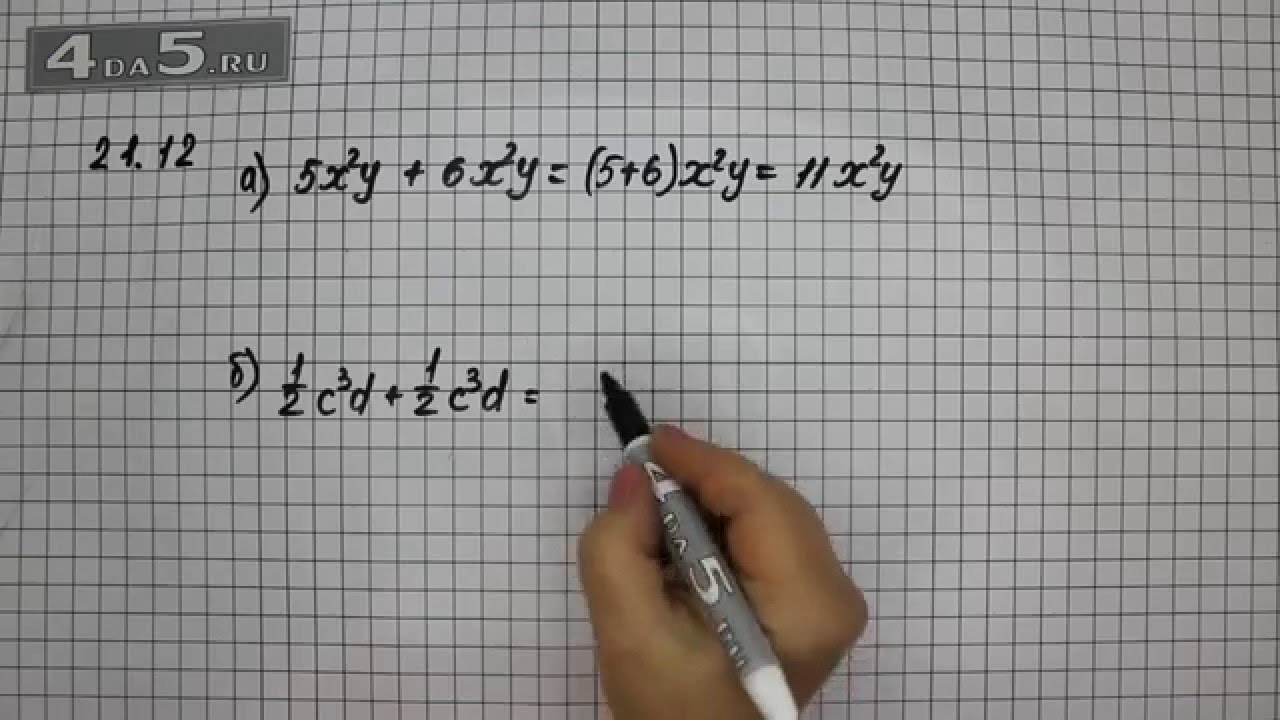 4DA5.RU
21.12
а) 5x²y + 6x²y = (5+6)x²y = 11x²y
б) 1/2 c³d + 1/2 c³d =
4 DA 5